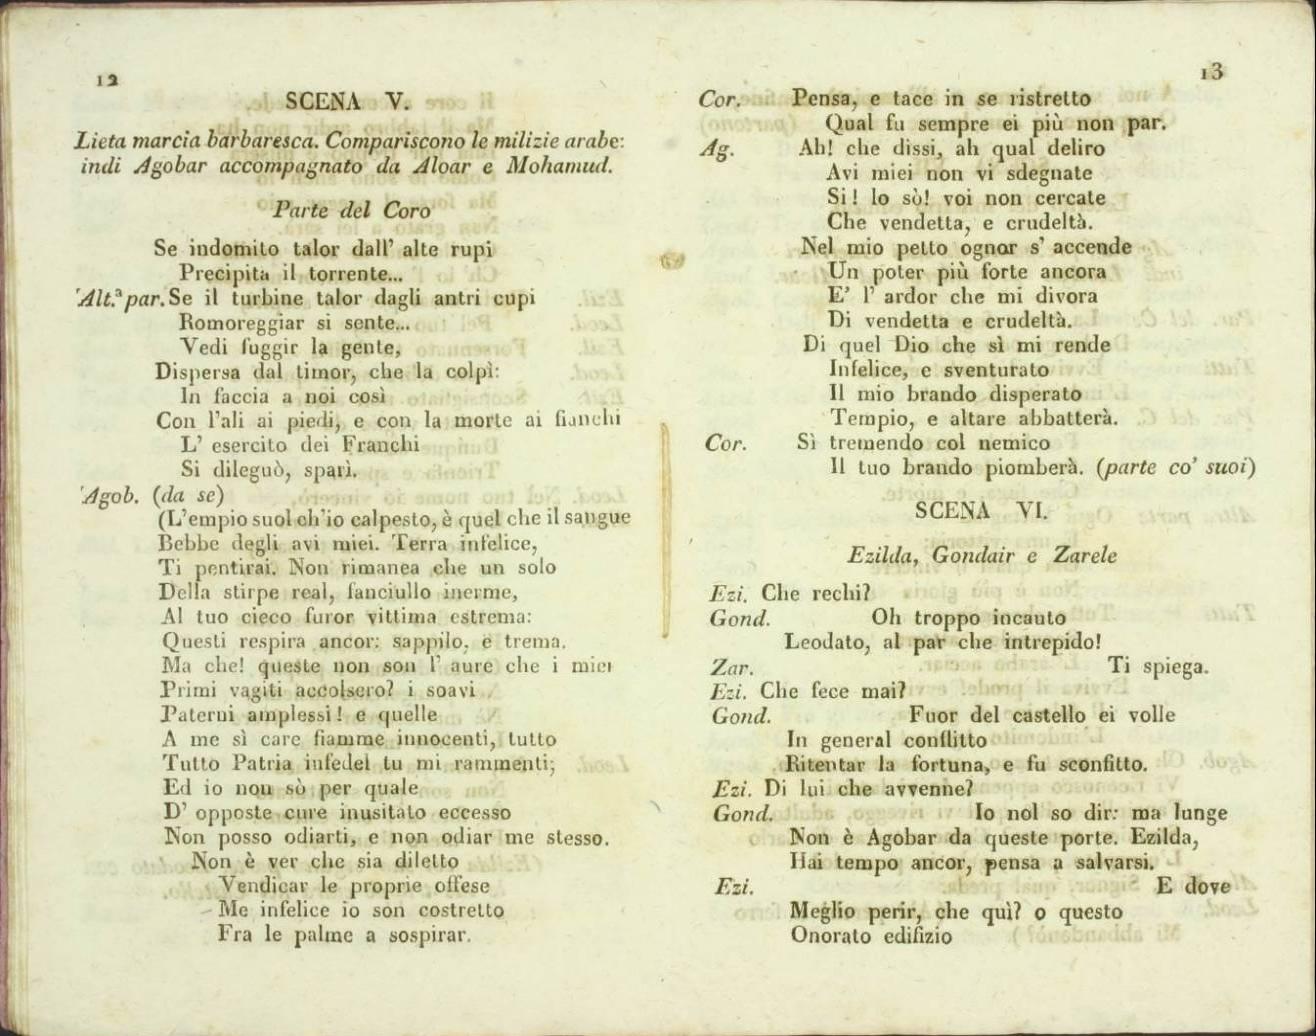 12
SCENA V.
Lieta marcia barbaresca. Compariscono le milizie arabe:
indi Agobar accompagnato da Aloar e Mohamud.
Parte del Coro
Se indomito talor dall' alte rupi
Precipita il torrente...
Alt.ª par. Se il turbine talor dagli antri cupi
Romoreggiar si sente...
Vedi fuggir la gente,
Dispersa dal timor, che la colpì:
In faccia a noi così
Con l'ali ai piedi, e con la morte ai fianchi
L' esercito dei Franchi
Si dileguò, sparì.
Agob. (da se)
(L'empio suol ch'io calpesto, è quel che il sangue
Bebbe degli avi miei. Terra infelice,
Ti pentirai. Non rimanea che un solo
Della stirpe real, fanciullo inerme,
Al tuo cieco furor vittima estrema:
Questi respira ancor: sappilo, e trema.
Ma che! queste non son l' aure che i miei
Primi vagiti accolsero? i soavi
Paterni amplessi! e quelle
A me sì care fiamme innocenti, tutto
Tutto Patria infedel tu mi rammenti;
Ed io non sò per quale
D' opposte cure inusitato eccesso
Non posso odiarti, e non odiar me stesso.
Non è ver che sia diletto
Vendicar le proprie offese
Me infelice io son costretto
Fra le palme a sospirar.
13
Cor. Pensa, e tace in se ristretto
Qual fu sempre ei più non par.
Ag. Ah! che dissi, ah qual deliro
Avi miei non vi sdegnate
Si! lo sò! voi non cercate
Che vendetta, e crudeltà.
Nel mio petto ognor s' accende
Un poter più forte ancora
E' l' ardor che mi divora
Di vendetta e crudeltà.
Di quel Dio che sì mi rende
Infelice, e sventurato
Il mio brando disperato
Tempio, e altare abbatterà.
Cor. Sì tremendo col nemico
Il tuo brando piomberà. (parte co' suoi)
SCENA VI.
Ezilda, Gondair e Zarele
Ezi. Che rechi?
Gond. Oh troppo incauto
Leodato, al par che intrepido!
Zar. Ti spiega.
Ezi. Che fece mai?
Gond. Fuor del castello ei volle
In general conflitto
Ritentar la fortuna, e fu sconfitto.
Ezi. Di lui che avvenne?
Gond. Io nol so dir: ma lunge
Non è Agobar da queste porte. Ezilda,
Hai tempo ancor, pensa a salvarsi.
Ezi. E dove
Meglio perir, che quì? o questo
Onorato edifizio